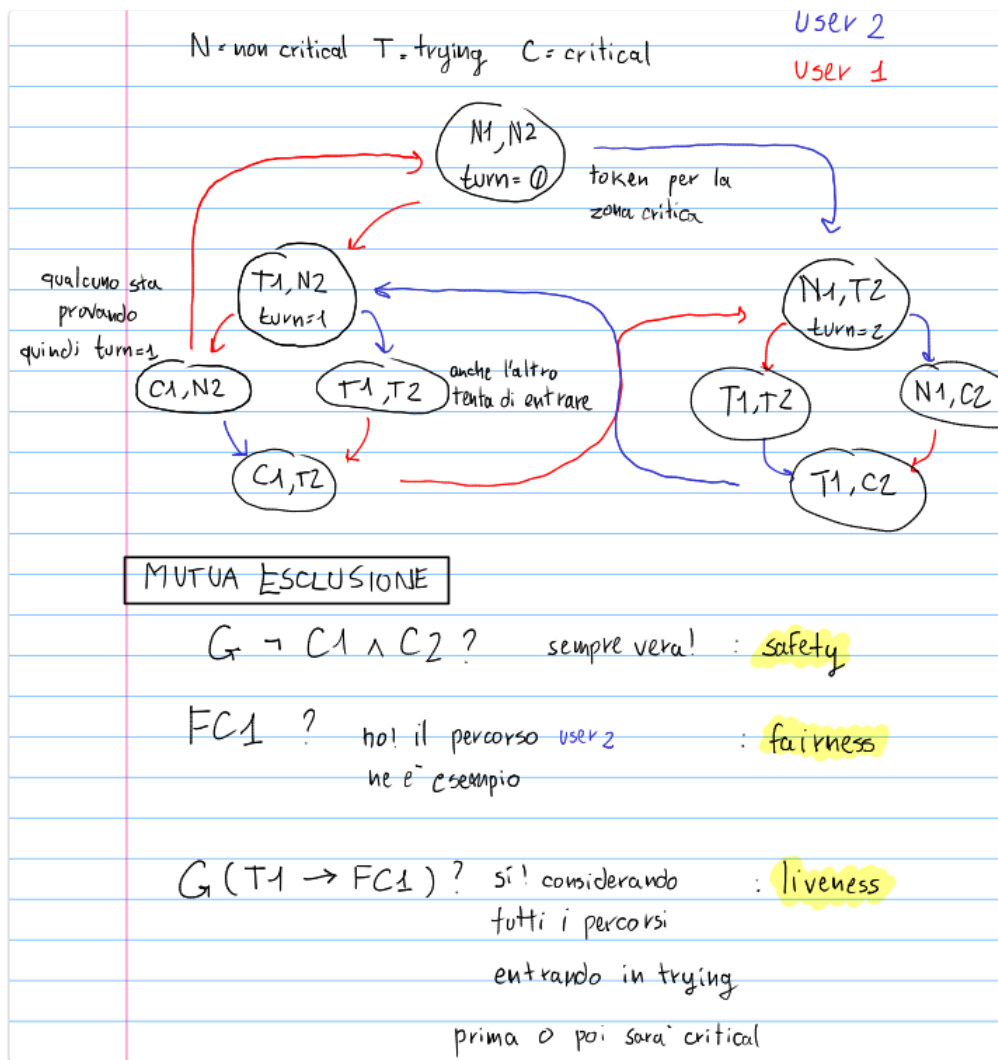 N = non critical T = trying C = critical
user 2
user 1
N1, N2
turn = 0
token per la
zona critica
qualcuno sta
provando
quindi turn=1
T1, N2
turn=1
N1, T2
turn=2
C1, N2
T1, T2
anche l'altro
tenta di entrare
T1, T2
N1, C2
C1, T2
T1, C2
MUTUA ESCLUSIONE
G ¬ C1 ∧ C2 ? sempre vera! : safety
FC1 ? no! il percorso user 2 : fairness
ne è esempio
G (T1 → FC1) ? sì! considerando : liveness
tutti i percorsi
entrando in trying
prima o poi sarà critical